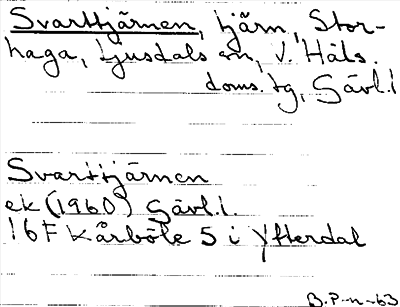 Svarttjärnen, tjärn, Stor-
haga, Ljusdals sn, V. Häls.
doms. tg, Gävl. l
Svarttjärnen
ek (1960) Gävl. l.
16F Kårböle 5 i Ytterdal
B.P-n-63